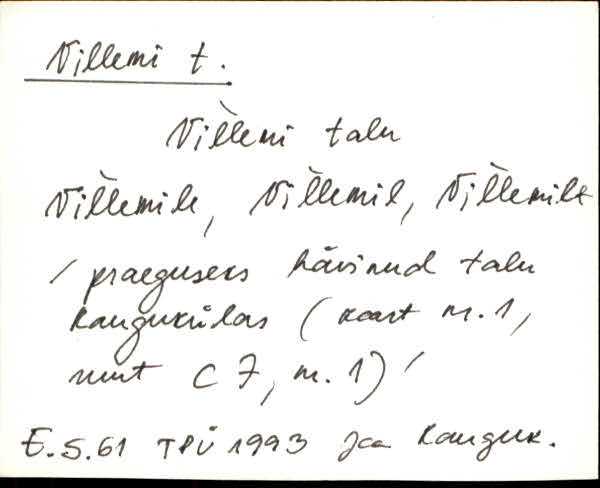 Villemi t.
Vil̀lemi talu
Vil̀lemile, Vil̀lemil, Vil̀lemilt
/ praeguseks hävinud talu
Kangukülas (kaart nr. 1,
ruut C 7, nr. 1) /
E.S.61 TPÜ 1993 Jaa Kanguk.